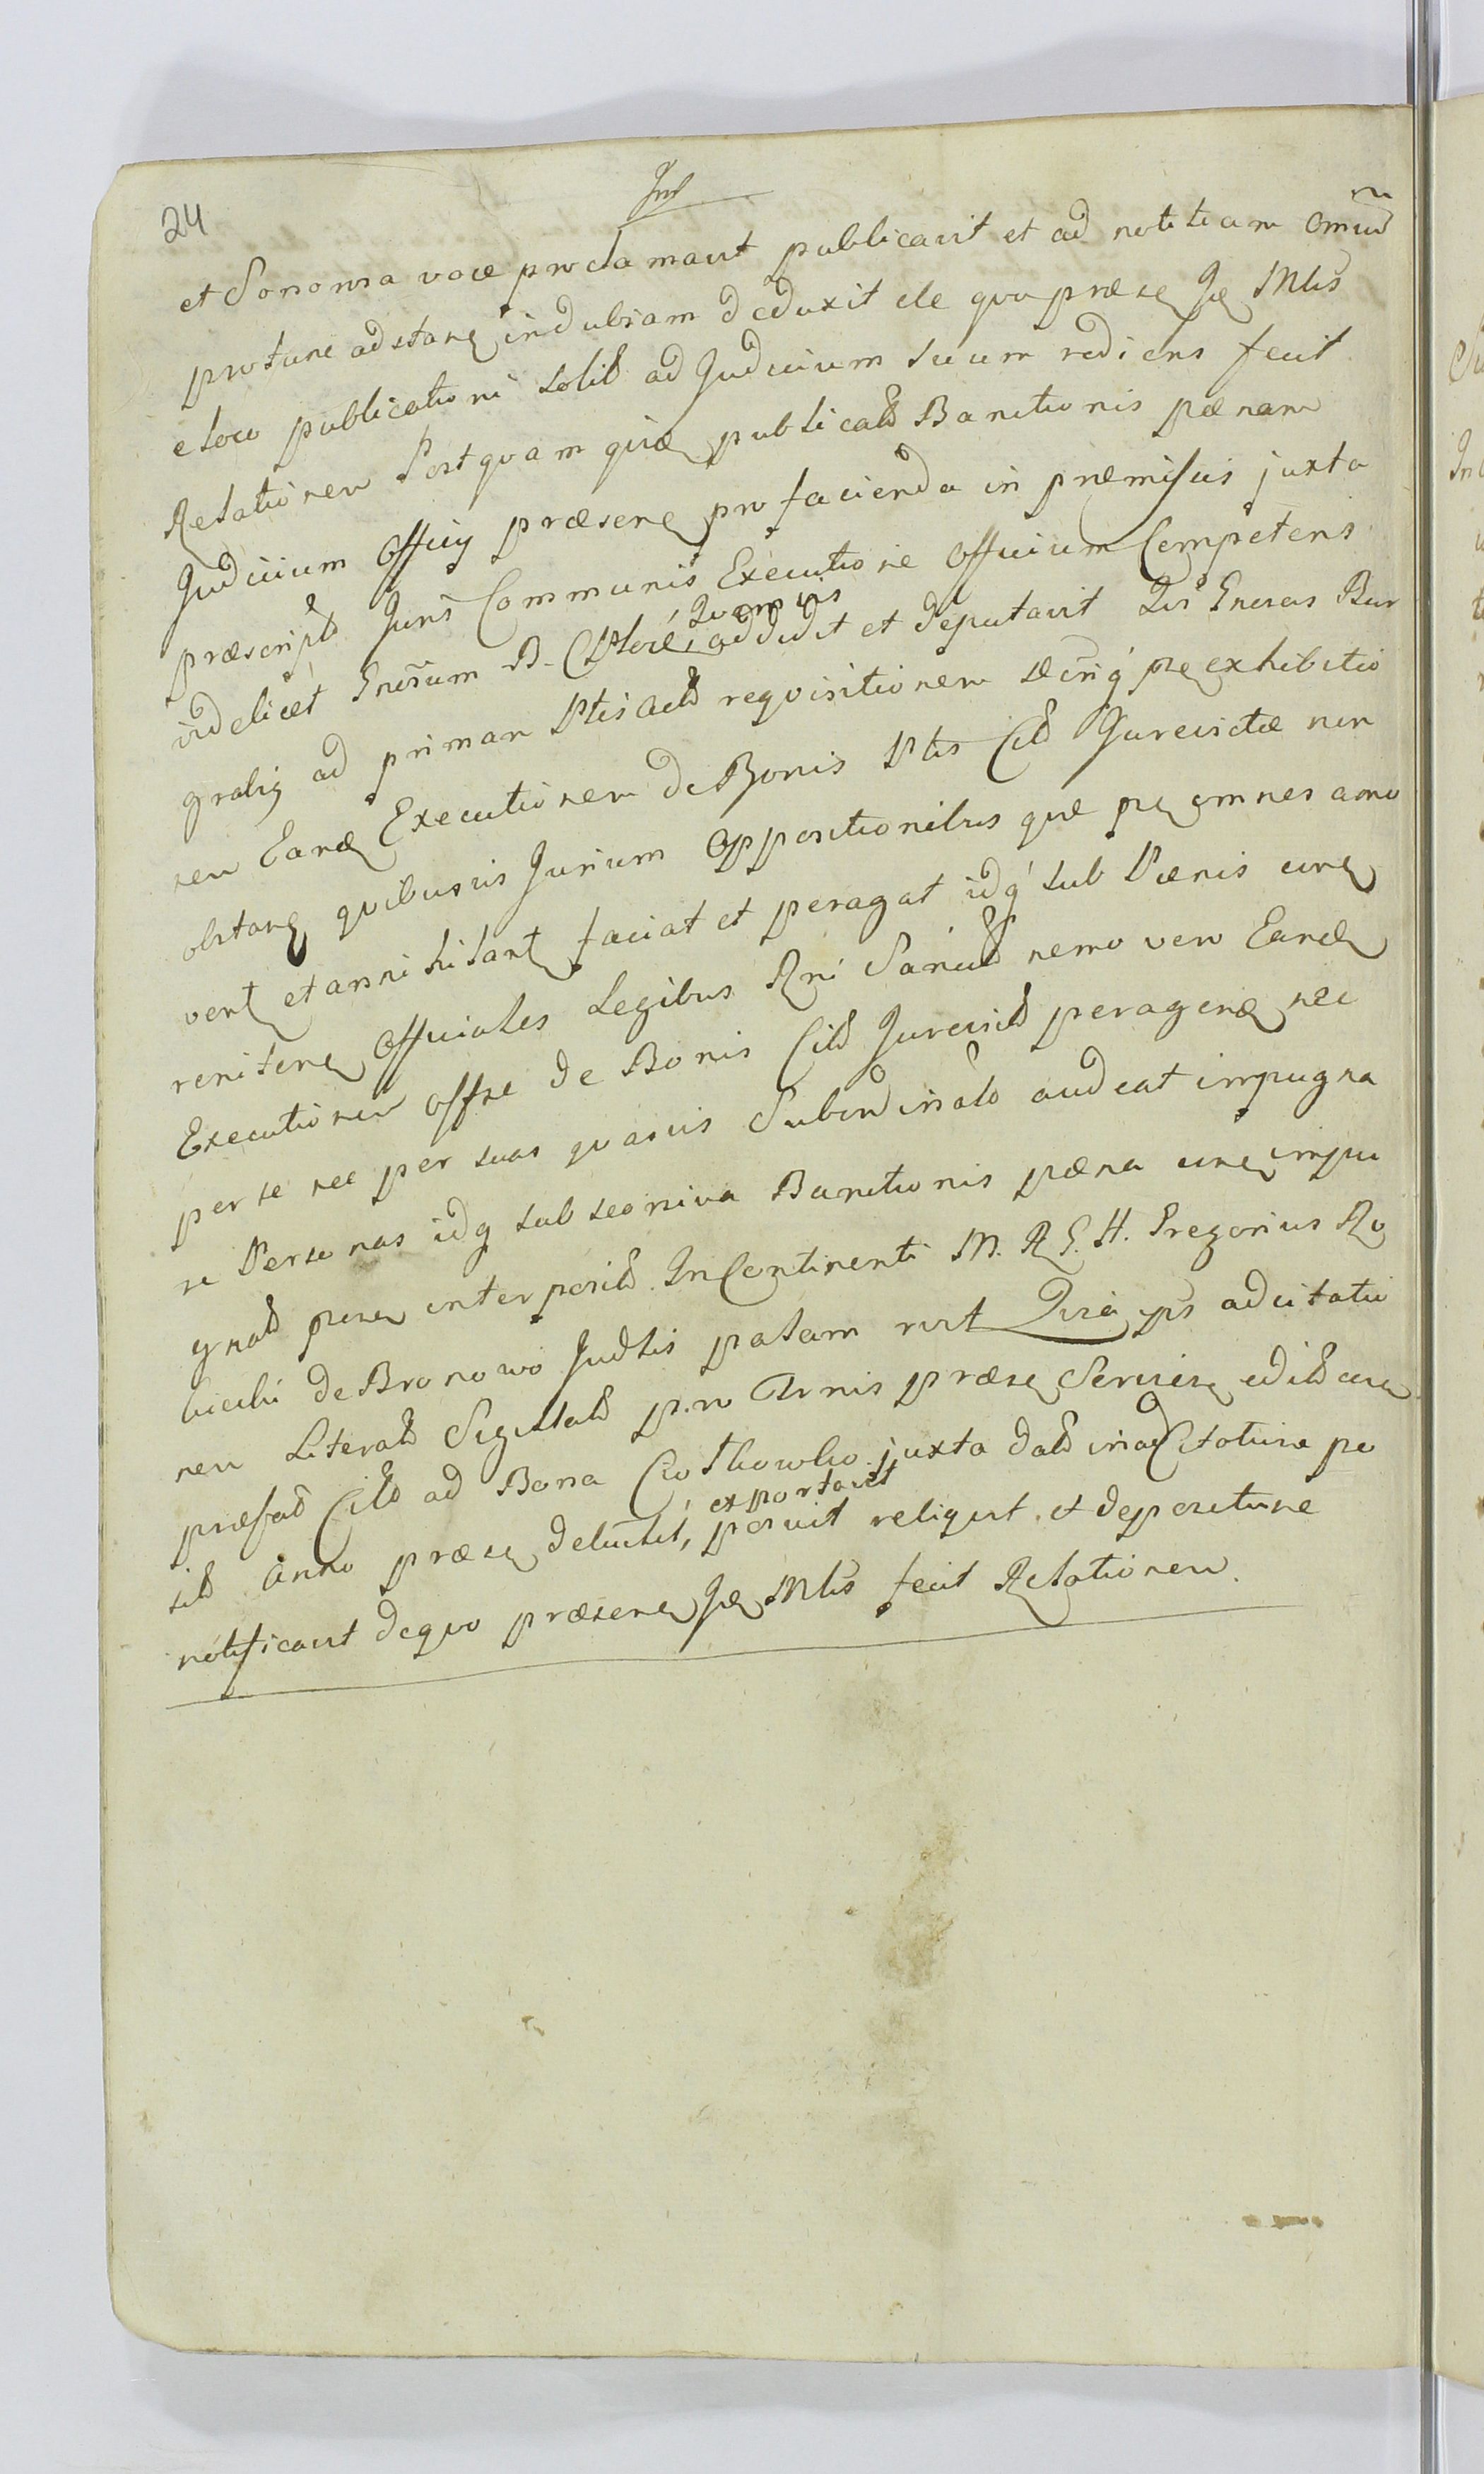 24
et Sonorosa voce proclamavit publicavit et ad notitiam omniũ
protunc adstanȩ indubiam deduxit de quo præseȩ Jȩ Mlis
e loco publicationi solit ad Judicium suum rediens fecit
Relationem Postquam quidȩ publicat Banitionis pœnam
Judicium Officij præsenȩ pro facienda in præmissis juxta
præscript Juris Communis Executione Officium Competens
videlicet Gnosum B. addidit et deputavit Qui Gnosus Bur
Quamvis
grabiȩ ad primam Ptis Act requisitionem præexhibitio
nem Eandȩ Executionem de Bonis Ptis Cit Jurevictæ non
obstanȩ quibusvis Jurium Oppositionibus quæ pȩ omnes amo
venţ et annihilanţ faciat et peragat idq́ sub Pœnis conȩ
renitenȩ Officiales Legibus Rni Sancit nemo vero Eandȩ
Executionem offse de Bonis Cit Jurevict peragendȩ nec
per se nec per suas quasvis Subordinat audeat impugna
re Personas idq sub seoniva Banitionis pœna conȩ impu
gnat pnse interposit. In Continenti M. R G. H. Gregorius Ro
bicki de Bronowo Judlis palam rvit Quia ips ad citatio
nem Literat Sigillat pro Trnis præseȩ Servisȩ edit
præfat Cit ad Bona juxta dat in ad Citatione po
sit Anno præseȩ detulit, posuit reliqvit et deposuisse
exportavit
notificavit de quo præsenȩ Jȩ Mlis fecit Relationem.